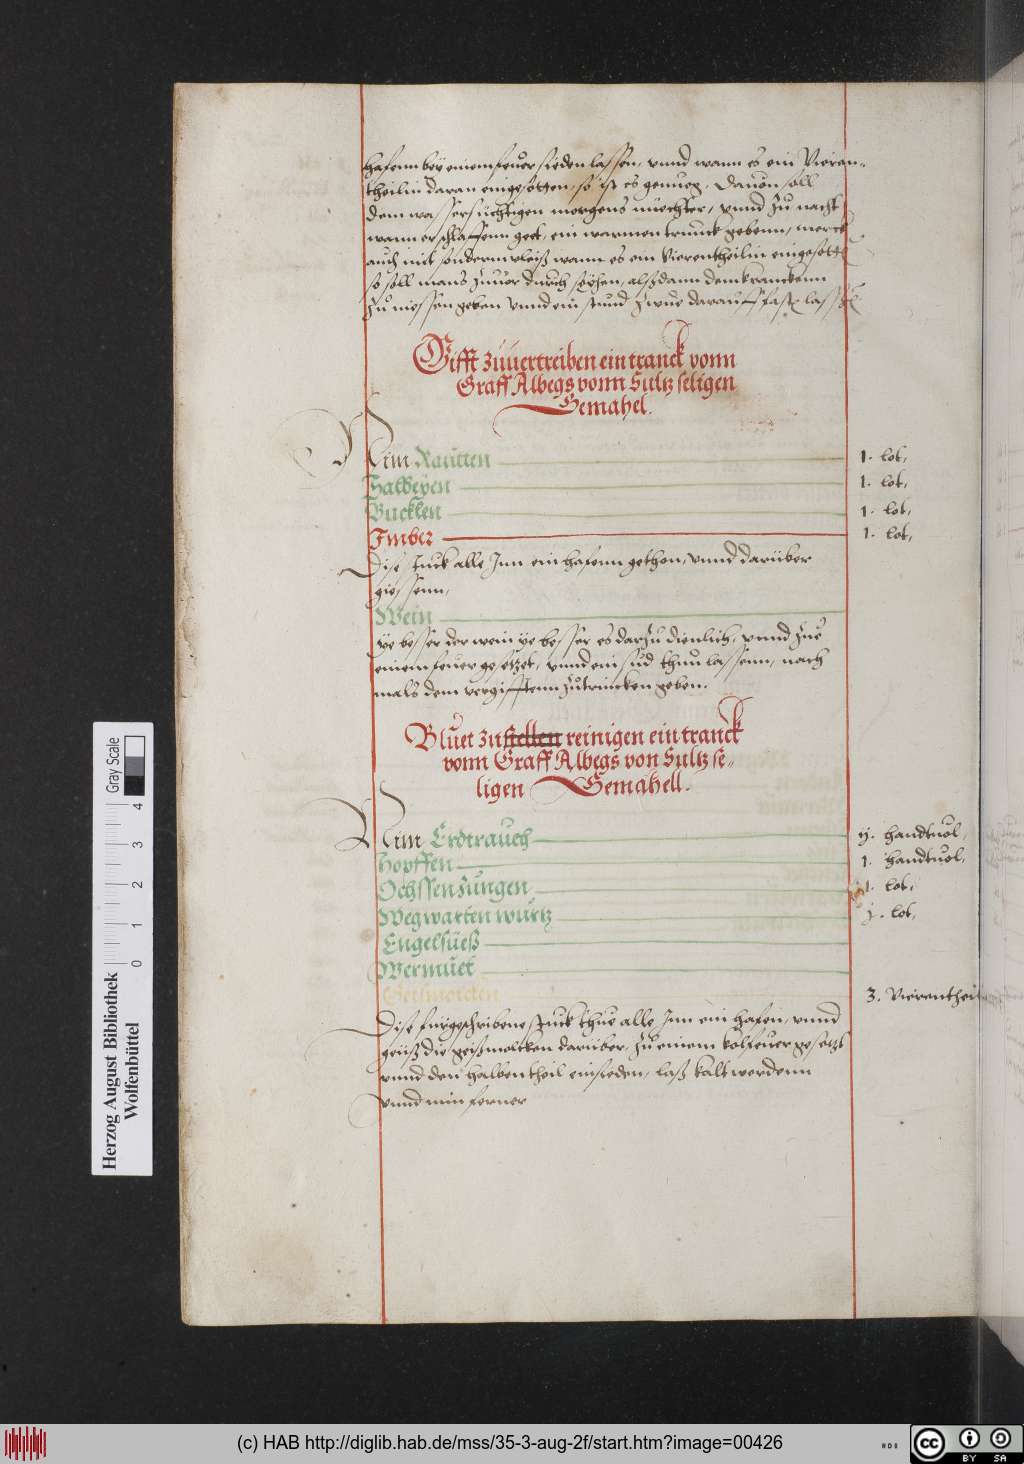 hafenn bey einem feuer sieden lassen, vnnd wann es ein Vieren-
theilin daran eingesotten, so ist es genueg. Dauon soll
dem wassersüchtigen morgens nüechter, vnnd zu nacht
wann er schlaffenn geet, ein warmen trunck gebenn, merck
auch mit sonderm vleiß wann es ein Vierentheilin eingesotten
so soll mans zuuor durch seyhen, alßdann dem kranckenn
zu niessen geben vnnd ein stund zwue darauff fasten lassen
Gifft zuuertreiben ein tranck vonn
Graff Albegs vonn Sultz seligen
Gemahel.
Nim Rautten 1. lot,
Salbeyen 1. lot,
Bucklen 1. lot,
Imber 1. lot,
Dise stuck alle Inn ein hafenn gethon, vnnd darüber
giessenn,
Wein
ye besser der wein ye besser es darzu dienlich, vnnd zue
einem feuer gesetzet, vnnd ein sud thun lassenn, nach
mals dem vergifftenn zutrincken geben.
Bluet zu stellen reinigen ein tranck
vonn Graff Albegs von Sultz se-
ligen Gemahell.
Nim Erdtrauch ij. handtuol,
Hopffen 1. handtuol,
Ochssenzungen 1. lot,
Wegwarten wurtz j. lot,
Engelsüeß
Wermuet
Geißmolcken 3. Vierentheil
Dise fürgeschribene stuck thue alle Inn ein hafen, vnnd
geuß die geißmolcken darüber, zu einem kolfeuer gesetzt
vnnd den halben theil einsieden, laß kalt werdenn
vnnd nim ferner
Herzog August Bibliothek
Wolfenbüttel
Gray Scale
0 1 2 3 4
(c) HAB http://diglib.hab.de/mss/35-3-aug-2f/start.htm?image=00426
cc BY SA